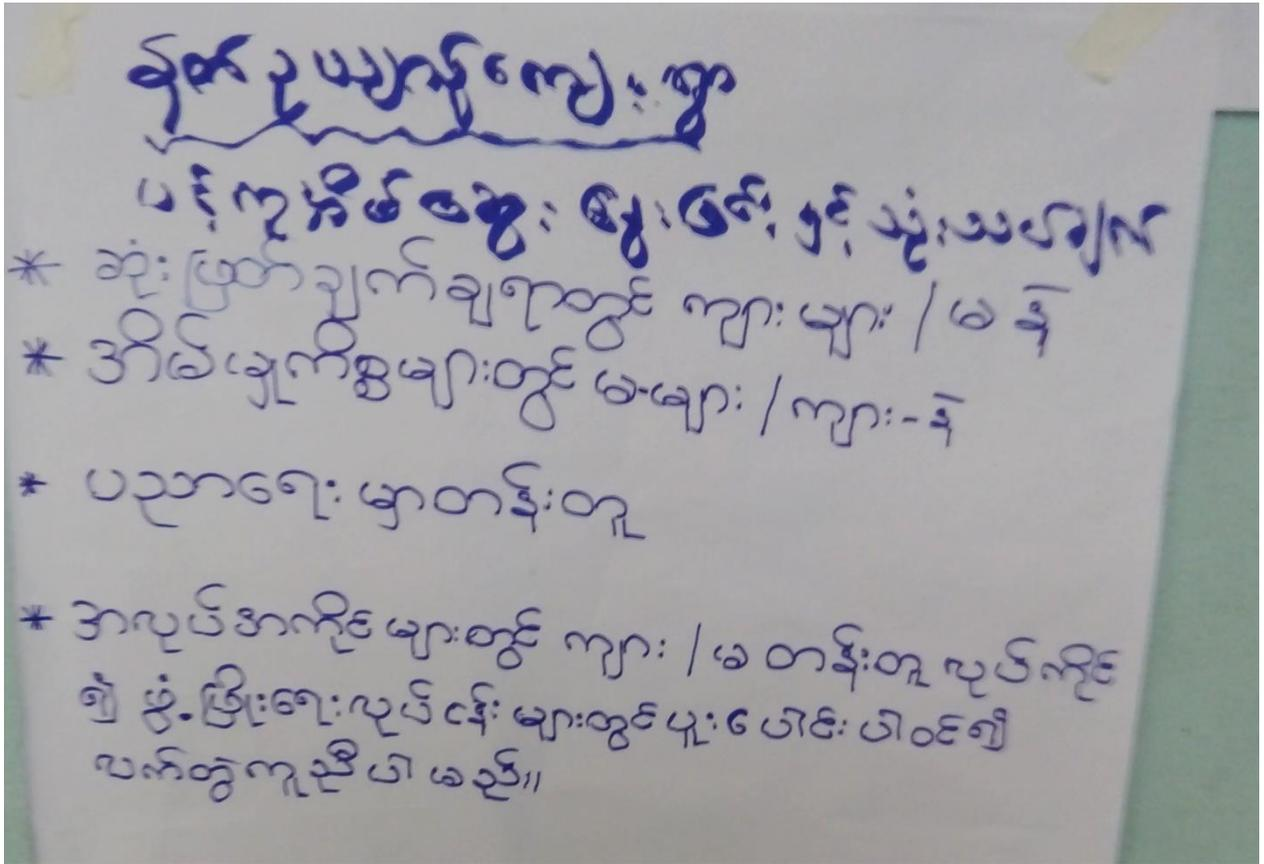 နတ်ဥယျာဉ်ကျေးရွာ
ပန့်ကူအိမ်ဆွေးနွေးခြင်းနှင့်သုံးသပ်ချက်
* ဆုံးဖြတ်ချက်ချရာတွင် ကျားများ / မ နဲ
* အိမ်မှုကိစ္စများတွင် မ-များ / ကျား-နဲ
* ပညာရေးမှာတန်းတူ
* အလုပ်အကိုင်များတွင် ကျား / မ တန်းတူ လုပ်ကိုင်
၍ ဖွံ့ဖြိုးရေးလုပ်ငန်းများတွင်ပူးပေါင်းပါဝင်၍
လက်တွဲကူညီပါမည်။